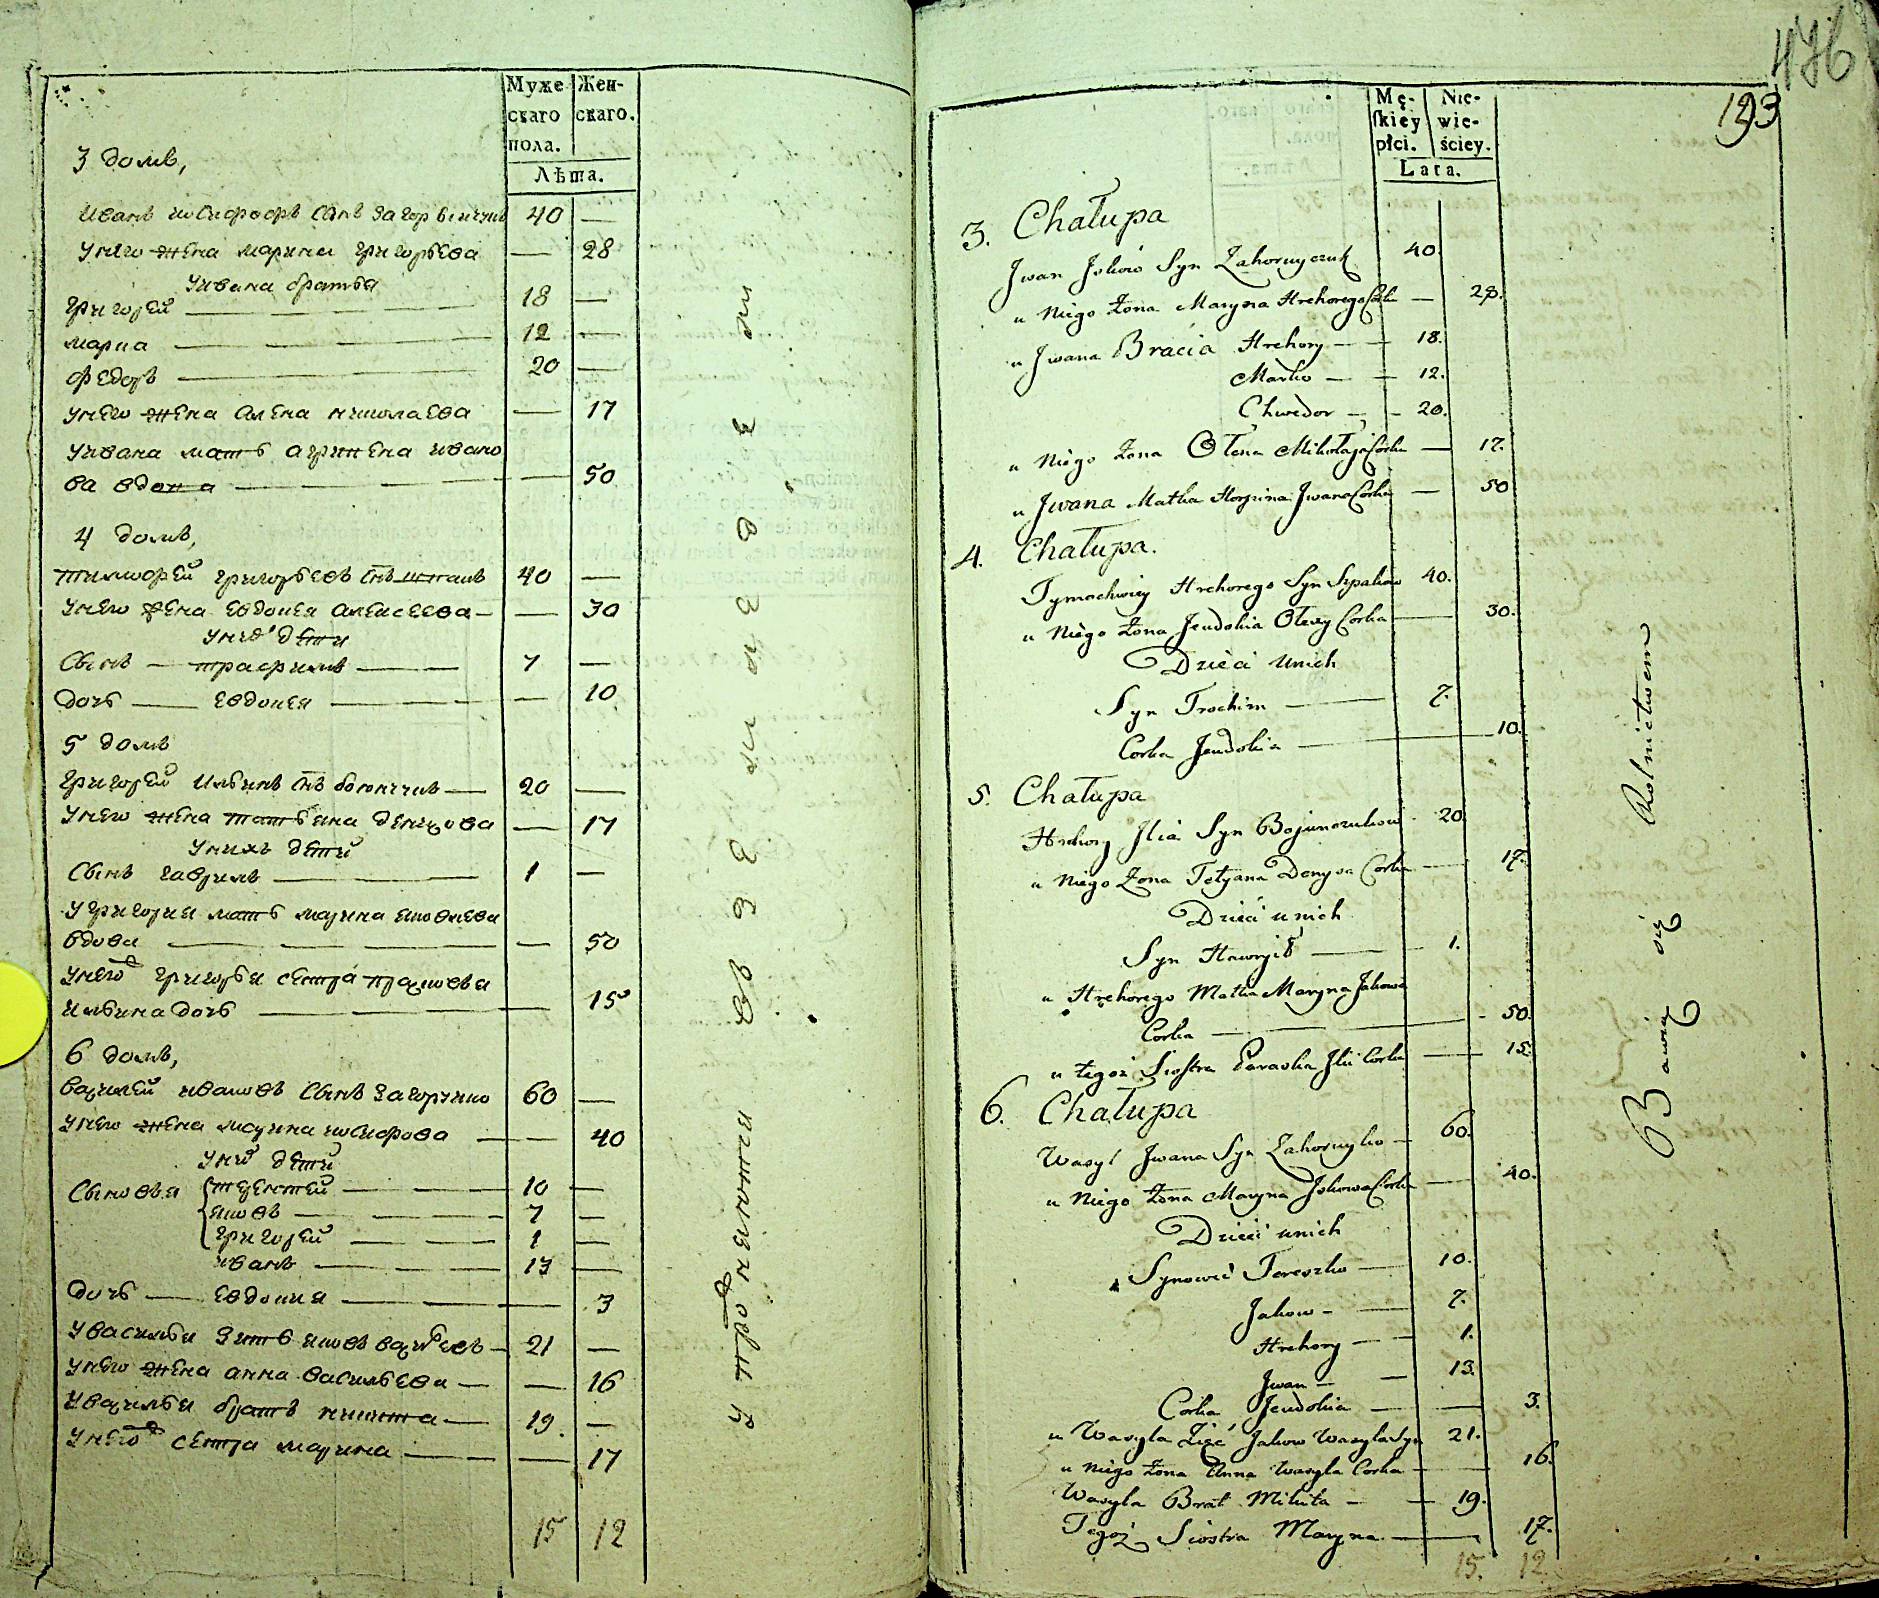 Муже
скаго
пола.
Жен-
скаго.
Лѣта.
3 домъ,
Иванъ иосифофъ сынъ загорвинчикъ 40 —
унего жена марина григорьева — 28
уивана братья
григорей — 18 —
марка — 12 —
федоръ — 20 —
унего жена алена николаева — 17
уивана мать агрипена ивано
ва вдова — — 50
4 домъ,
тимофей григорьевъ снъ шпакъ 40 —
унего жена евдокея алексеева — — 30
уних дети
сынъ — трафимъ — 7 —
дочь — евдокея — — 10
5 домъ
григорей ильинъ снъ боюнчикъ — 20 —
унего жена татьяна денисова — 17
унихъ дети
сынъ гаврилъ — 1 —
угригория мать марина яковлева
вдова — — 50
унегож григорья сестра прасковья
ильина дочь — — 15
6 домъ,
василей ивановъ сынъ загорнико 60 —
унего жена марина иосифова — — 40
уних дети
сыновья терентей — 10 —
яковъ — 7 —
григорей — 1 —
иванъ — 13 —
дочь — евдокия — — 3
увасилья зять яковъ васильевъ — 21 —
унего жена анна васильева — — 16
увасилья братъ никита — 19 —
унегож сестра марина — — 17
15 12
476
193
Mę-
ſkiey
płci.
Nie-
wie-
ściey.
Lata.
3. Chałupa
Jwan Jskowo Syn Zahornyczuk 40.
u Niego Żona Maryna Hrehorego Corka — 28.
u Jwana Bracia Hrehory — — 18.
Marko — — 12.
Chwedor — — 20.
u Niego Żona Ołena Mikołaja Corka — 17.
u Jwana Matka Horpina Jwana Corka — 50
4. Chałupa.
Tymochwiey Hrehorego Syn Szpakow 40.
u Niego Żona Jeudokia Olexy Corka — 30.
Dzieci unich
Syn Trochim — 7.
Corka Jeudokia — 10.
5. Chałupa
Hrehory Jlia Syn Bojunczukow 20.
u Niego Żona Tetyana Denysa Corka — 17.
Dzieci unich
Syn Hawryło — 1.
u Hrehorego Matka Maryna Jakowa
Corka — 50.
u tegoż Siostra Paraska Jlii Corka — 15.
6. Chałupa
Wasyl Jwana Syn Zahornyko — 60.
u Niego Żona Maryna Jskowa Corka — 40.
Dzieci unich
Synowie Tereszko — 10.
Jakow — 7.
Hrehory — 1.
Jwan — — 13.
Corka Jeudokia — — 3.
u Wasyla Zięć Jakow Wasyla Syn 21.
u Niego Żona Anna Wasyla Corka — 16.
Wasyla Brat Mikita — — 19.
Tegoż Siostra Maryna — 17.
15. 12.
Bawią się Rolnictwem